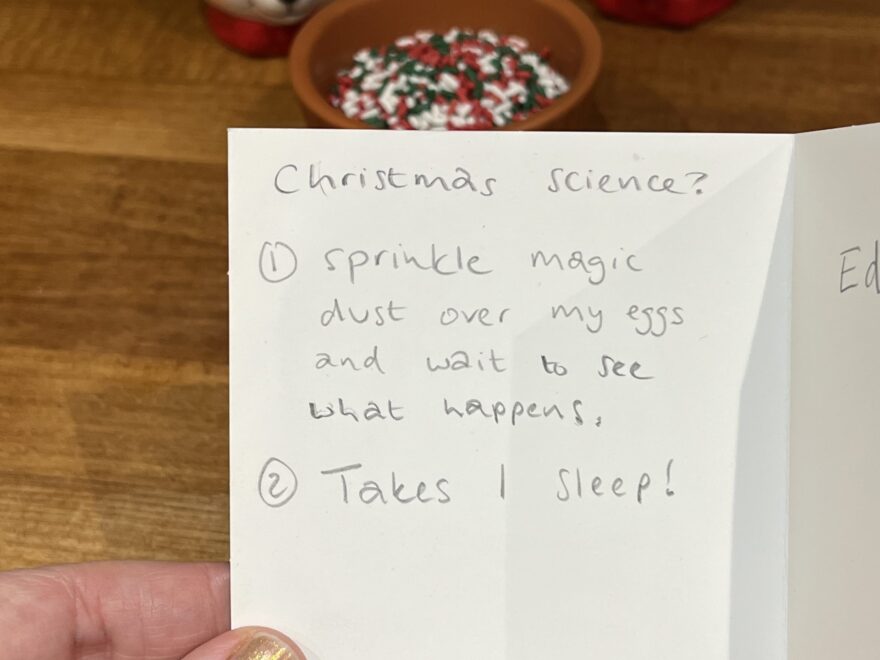 Christmas science?
① sprinkle magic
dust over my eggs
and wait to see
what happens.
② Takes 1 sleep!
Ed